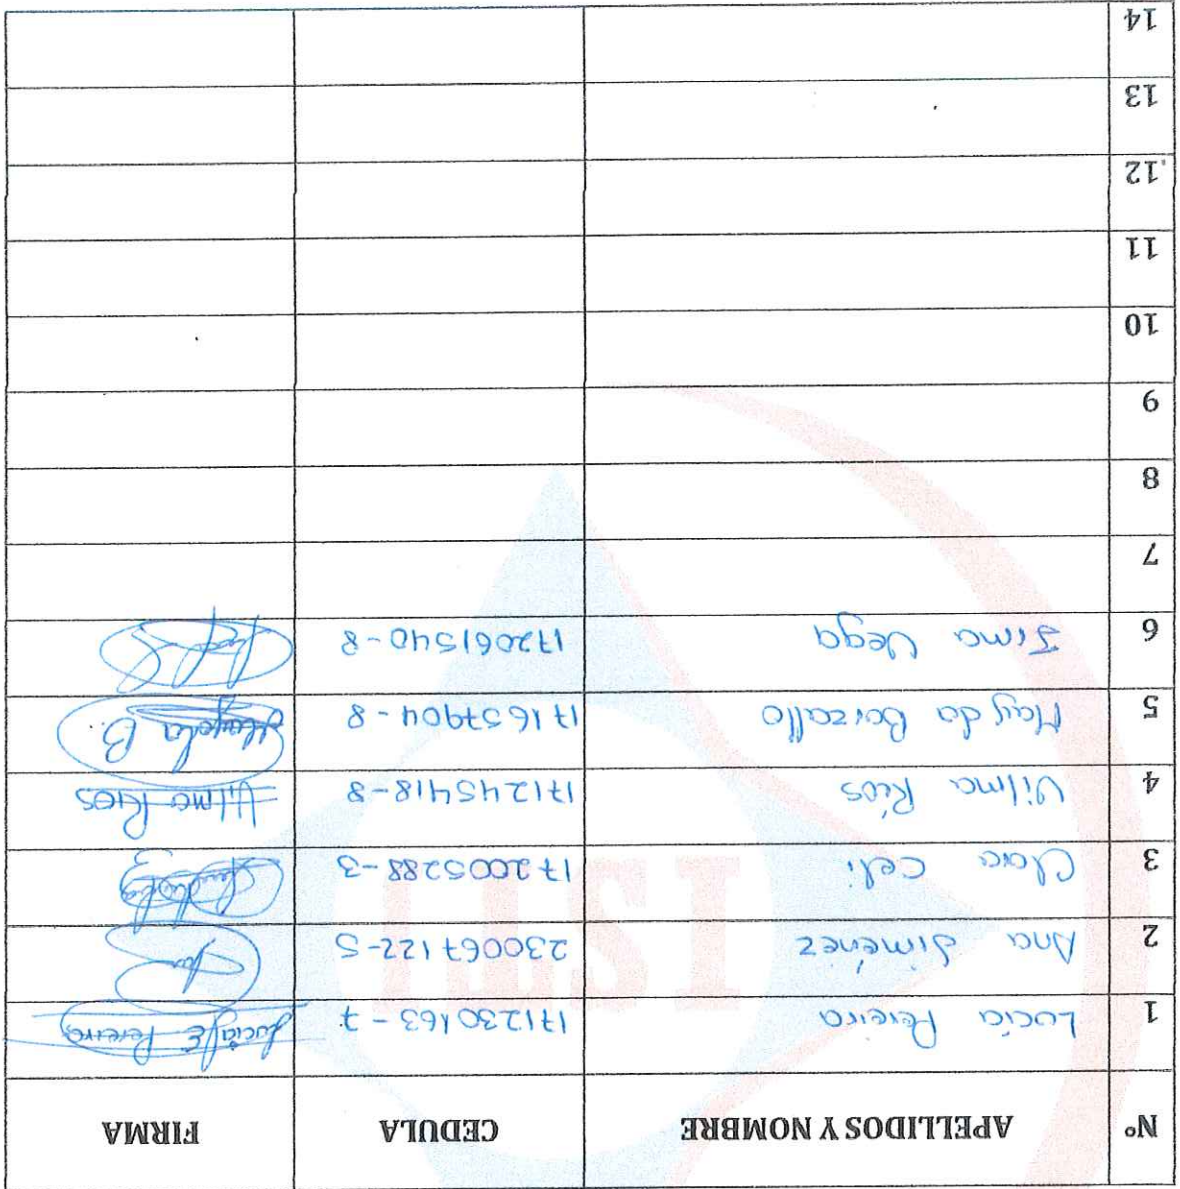 N° APELLIDOS Y NOMBRE CEDULA FIRMA
1 Lucía Pereira 171230163-7 Lucía E Pereira
2 Ana Jiménez 230067122-5
3 Clara Celi 172005288-3
4 Vilma Ríos 171245418-8 Vilma Ríos
5 Mayda Barzallo 171657904-8 B.
6 Vega 172061540-8
7
8
9
10
11
12
13
14